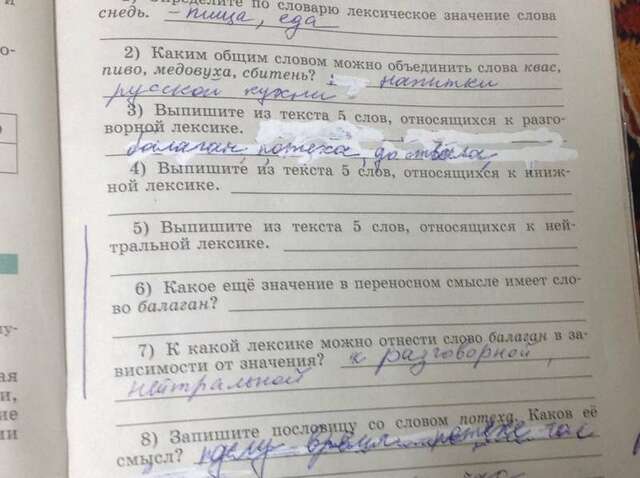 Определите по словарю лексическое значение слова
снедь. - пища, еда
2) Каким общим словом можно объединить слова квас,
пиво, медовуха, сбитень? напитки
русской кухни
3) Выпишите из текста 5 слов, относящихся к разго-
ворной лексике.
балаган потеха
4) Выпишите из текста 5 слов, относящихся к книж-
ной лексике.
5) Выпишите из текста 5 слов, относящихся к ней-
тральной лексике.
6) Какое ещё значение в переносном смысле имеет сло-
во балаган?
7) К какой лексике можно отнести слово балаган в за-
висимости от значения? к разговорной,
нейтральной
8) Запишите пословицу со словом потеха. Каков её
смысл? делу время потехе час